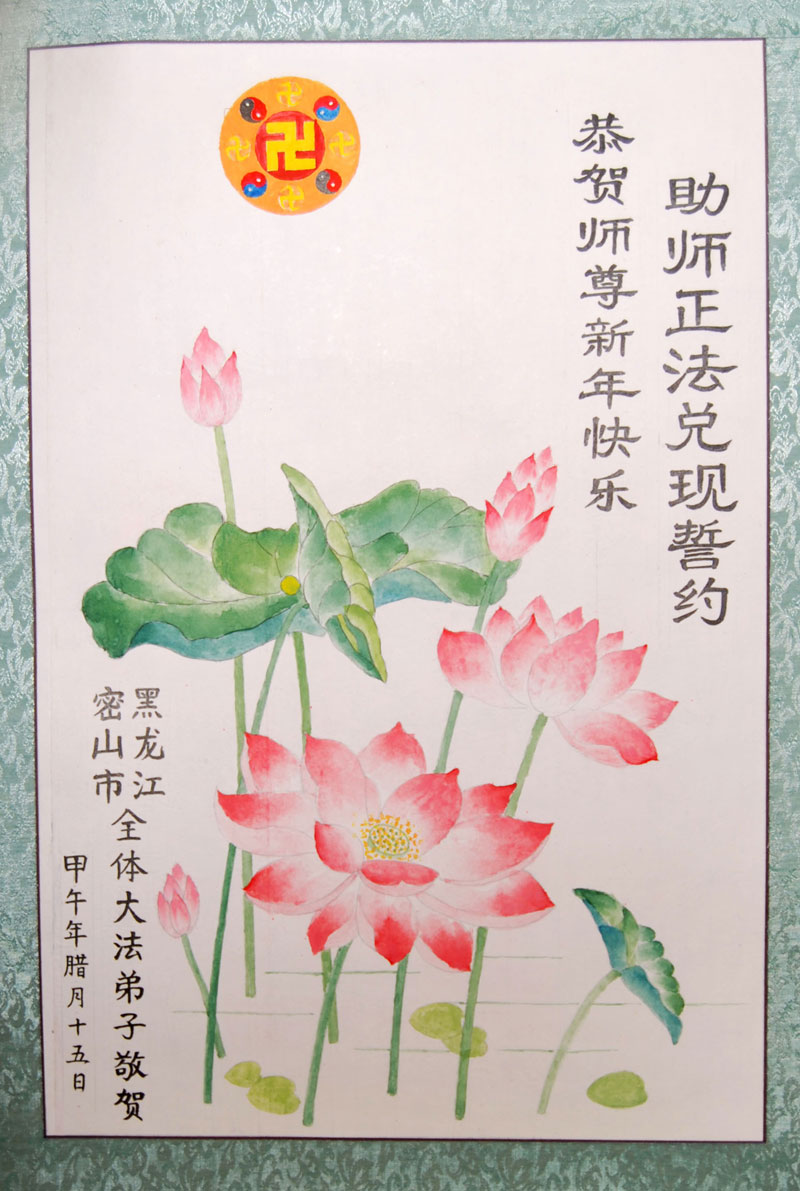 助师正法兑现誓约
恭贺师尊新年快乐
黑龙江
密山市
全体大法弟子敬贺
甲午年腊月十五日